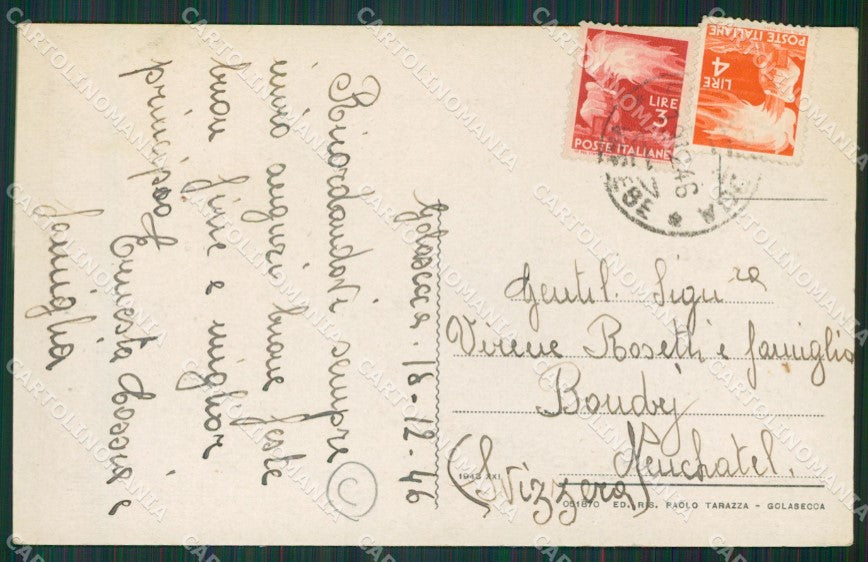 Golasecca. 18-12-46
Ricordandovi sempre
invio auguri buone feste
buon fine e miglior
principio
Ernesta Rossi e
famiglia
LIRE
3
POSTE ITALIANE
POSTE ITALIANE
LIRE
4
Gentil. Sigra
Virene Rosetti e famiglia
Boudry
Neuchatel.
(Svizzera)
1943 XXI
051870 ED. RIS. PAOLO TARAZZA - GOLASECCA
CARTOLINOMANIA